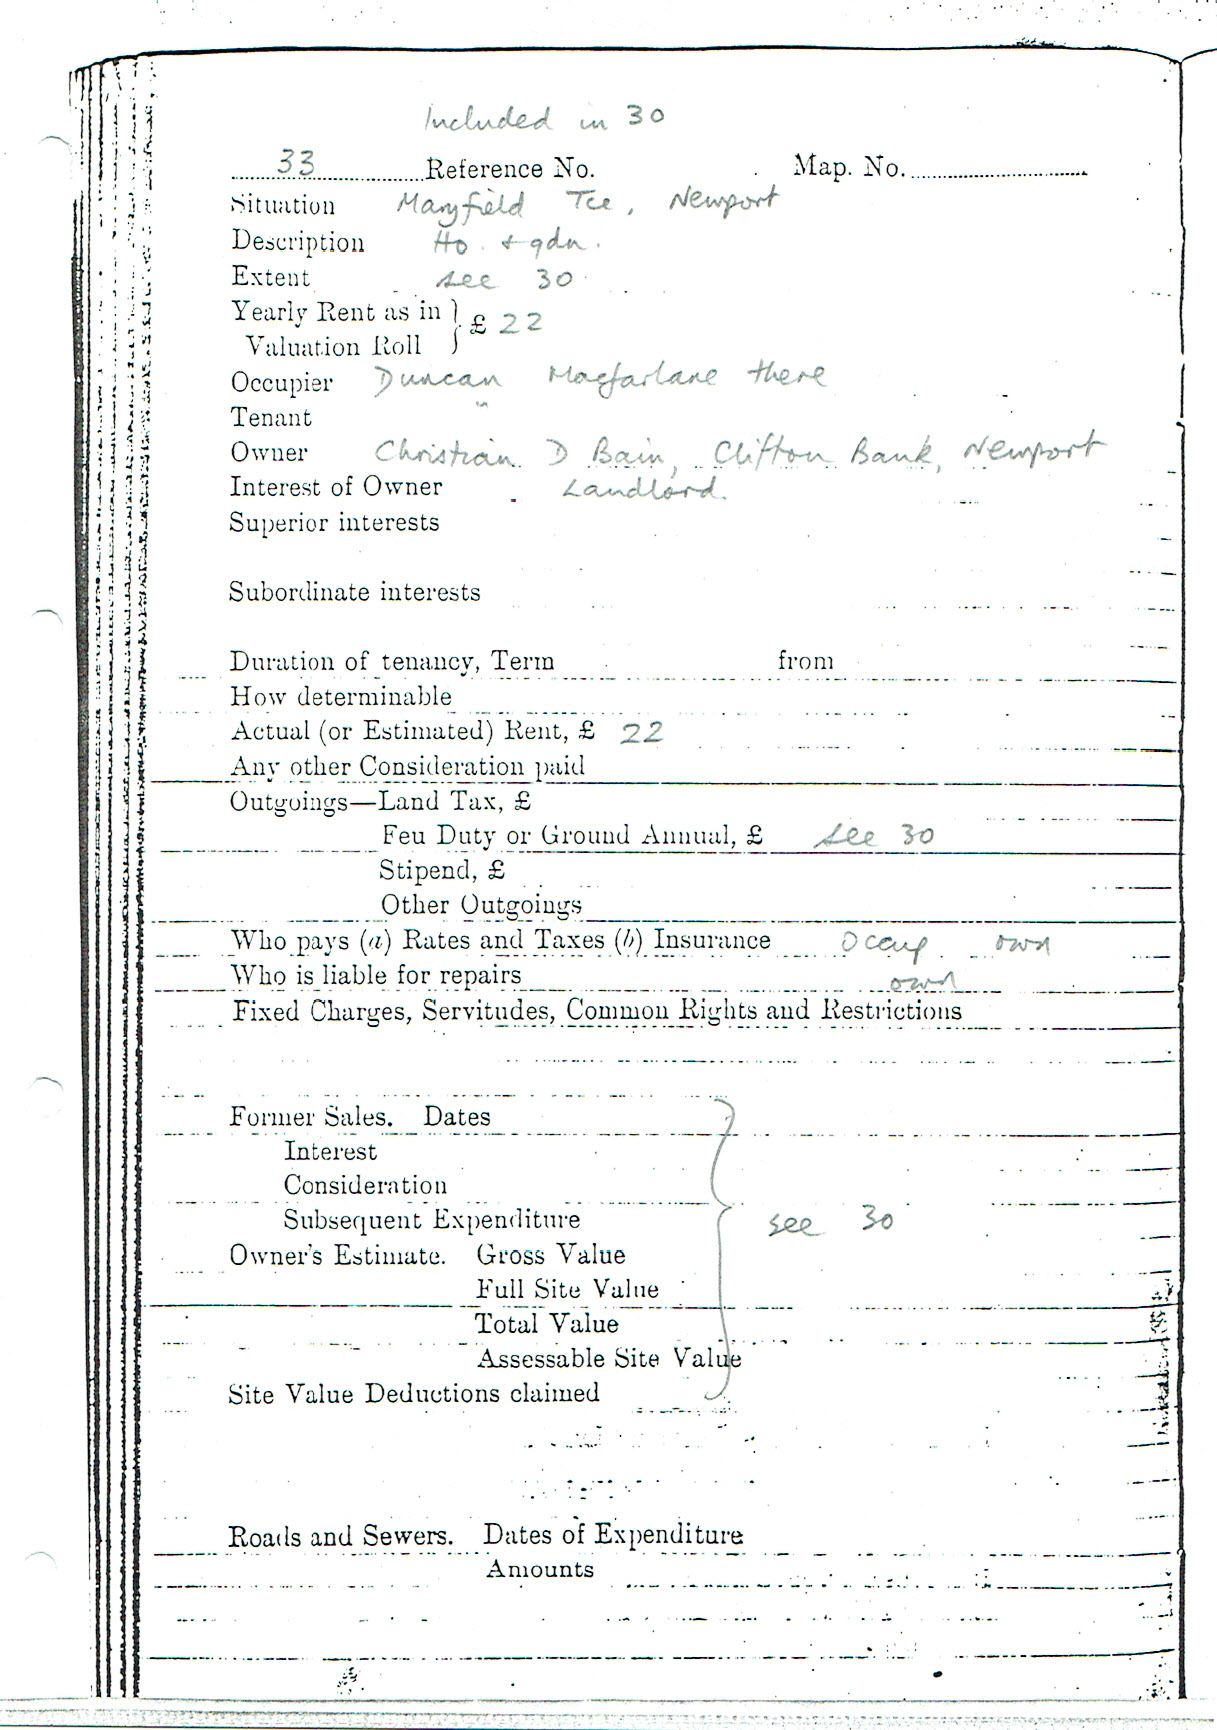 Included in 30
33 Reference No. Map. No.
Situation Maryfield Tce, Newport
Description Ho. + gdn.
Extent see 30
Yearly Rent as in
Valuation Roll } £ 22
Occupier Duncan Macfarlane there
Tenant "
Owner Christian D Bain, Clifton Bank, Newport
Interest of Owner Landlord.
Superior interests
Subordinate interests
Duration of tenancy, Term from
How determinable
Actual (or Estimated) Rent, £ 22
Any other Consideration paid
Outgoings—Land Tax, £
Feu Duty or Ground Annual, £ see 30
Stipend, £
Other Outgoings
Who pays (a) Rates and Taxes (b) Insurance Occup own
Who is liable for repairs own
Fixed Charges, Servitudes, Common Rights and Restrictions
Former Sales. Dates
Interest
Consideration
Subsequent Expenditure see 30
Owner's Estimate. Gross Value
Full Site Value
Total Value
Assessable Site Value
Site Value Deductions claimed
Roads and Sewers. Dates of Expenditure
Amounts